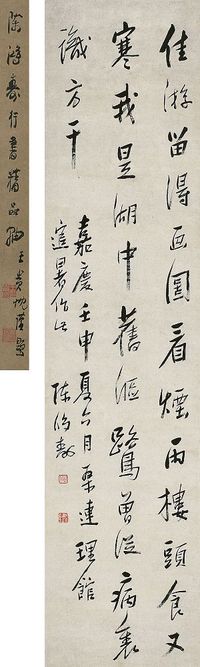 佳游留得画圖看煙雨樓頭食又
寒我是湖中舊漚鷺曾從病裏
識方干
嘉慶壬申夏六月桑連理館
逭暑作 陳鴻壽
陳鴻壽行書精品軸 王貴忱